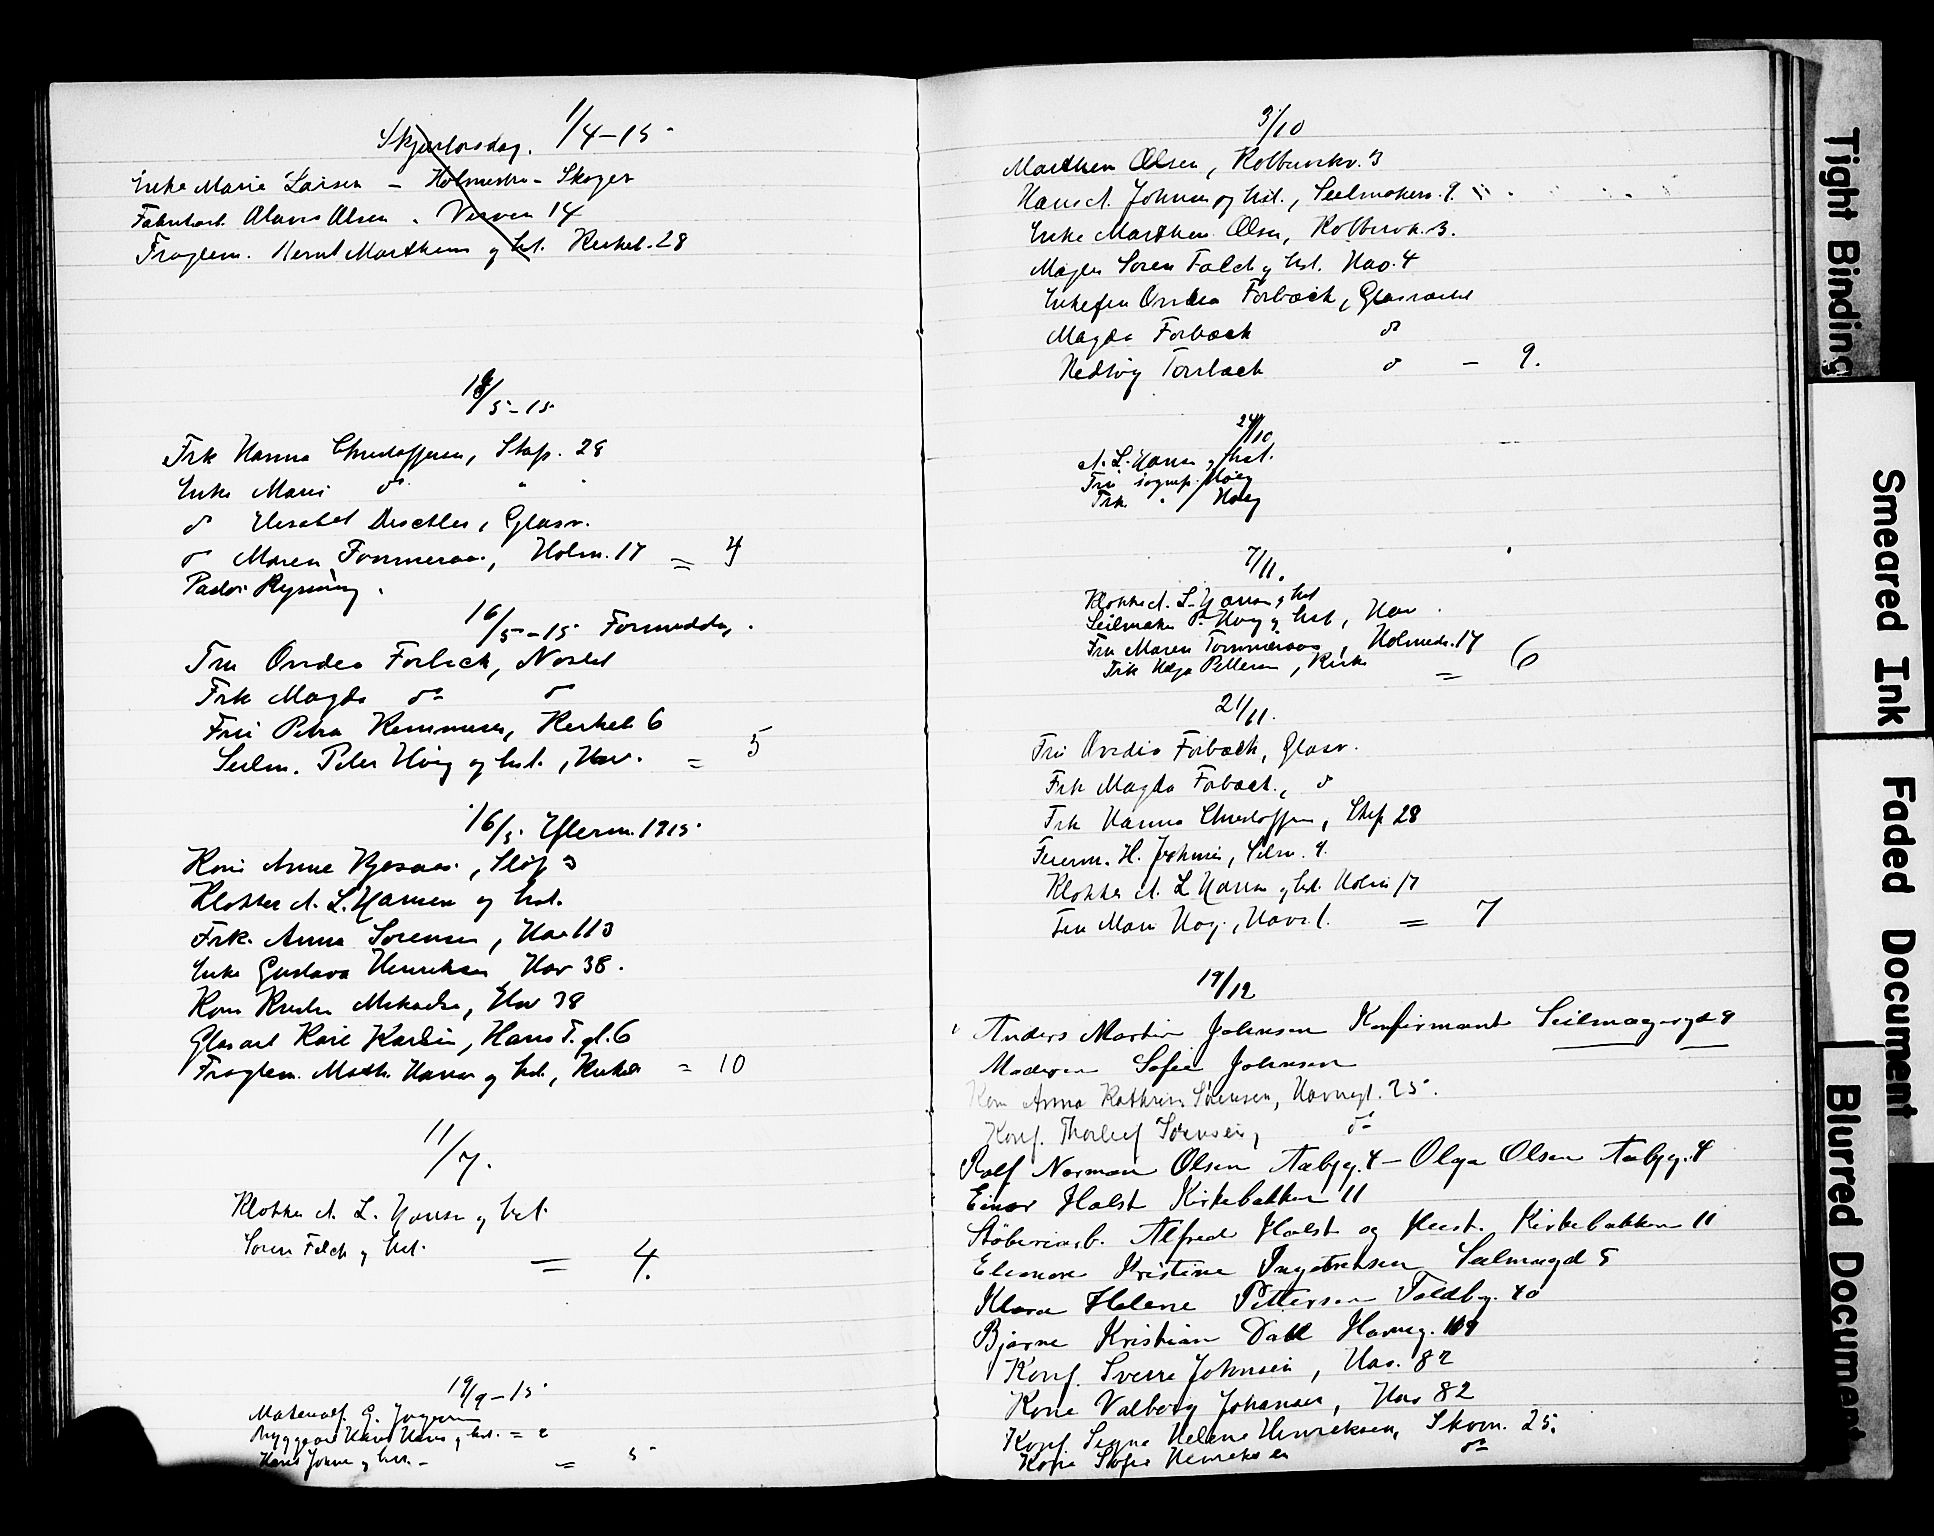 Skjærtorsdag. 1/4-15
Enke Marie Larsen - Holmestr - Skoger
Olsen. Verven 14
Froglem. Bernt Marthens og hst. Kirkeb. 28
18/5-15
Frk Hanna Christoffersen, Skip. 28
Enke Marie do " "
do Elisabet Glasv.
do Maren Tommeraas, Holm. 17 = 4
Pastor Rynning.
16/5-15 Formiddag.
Fru Ovedea Forbech, Nostet
Frk Magda do do
Fru Petra Rasmussen, Kirkeb 6
Seilm. Peter Høeg og hst., Hav. = 5
16/5 Efterm. 1915
Kone Anne Skip 3
Klokker A. L. Hansen og hst.
Frk. Anna Sørensen, Hav 113
Enke Gustava Henriksen Hav 38.
Kone Mikaelsen, Hav 38
Glasarb Karl Karlsen, Hans T. gt. 6
Froglem. Math. Hansen og hst, Kirkeb = 10
11/7.
Klokker A. L. Hansen og hst
Soren Falch og hst. = 4.
19/9-15
Materialf. G.
Byggearb Hans Hansen og hst. = 2
Hans Johnsen og hst. - = 5
3/10
Marthen Olsen, Kolbernkv. 3
Hans A. Johnsen og hst., Seilmakerv. 9.
Enke Marthen Olsen, Kolbernk. 3.
Mægler Soren Falch og hst. Hav. 4
Enkefru Ovedea Forbech, Glasværket
Magda Forbech do
Hedvig Forbech do - 9.
24/10
A. L. Hansen og hst.
Fru sognep. Høeg
Frk. " Høeg
7/11.
Klokker A. L. Hansen og hst
Seilmaker P. Høeg og hst, Hav.
Fru Maren Tommeraas, Holmedr. 17
Frk Helga Pettersen, Kirke = 6
21/11.
Fru Ovedia Forbech, Glasv.
Frk Magda Forbech., do
Frk Hanna Christoffersen, Skip 28
Feierm. H. Johnsen, Seilm. 9.
Klokker A. L. Hansen og hst. Holm 17
Fru Maren Høeg, Havn 1. = 7
19/12
Anders Martin Johnsen Konfirmant Seilmagergd 9
Moderen Sofie Johnsen
Kone Anna Kathrine Sørensen, Havnegt. 25.
Konf. Thorleif Sørensen, do
Rolf Norman Olsen Aabyg. 4 - Olga Olsen Aabyg. 4
Einar Holst Kirkebakken 11
Støberiarb. Alfred Holst og Hust. Kirkebakken 11
Elenore Kristine Ingebretsen Seilmagd 5
Klara Helene Pettersen Toldbg. 40
Bjarne Kristian Dahl Havneg. 109
Konf. Sverre Johnsen, Hav. 82
Kone Valborg Johansen, Hav 82
Konf. Signe Helene Henriksen, Skom. 25.
Kone Sofie Henriksen do
Tight Binding
Smeared Ink
Faded Document
Blurred Document